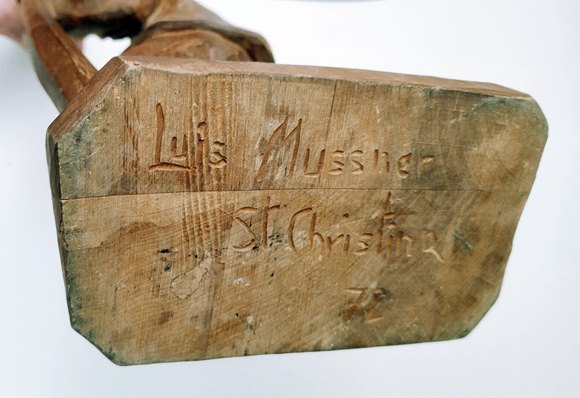 Luis Mussner
St. Christina
72